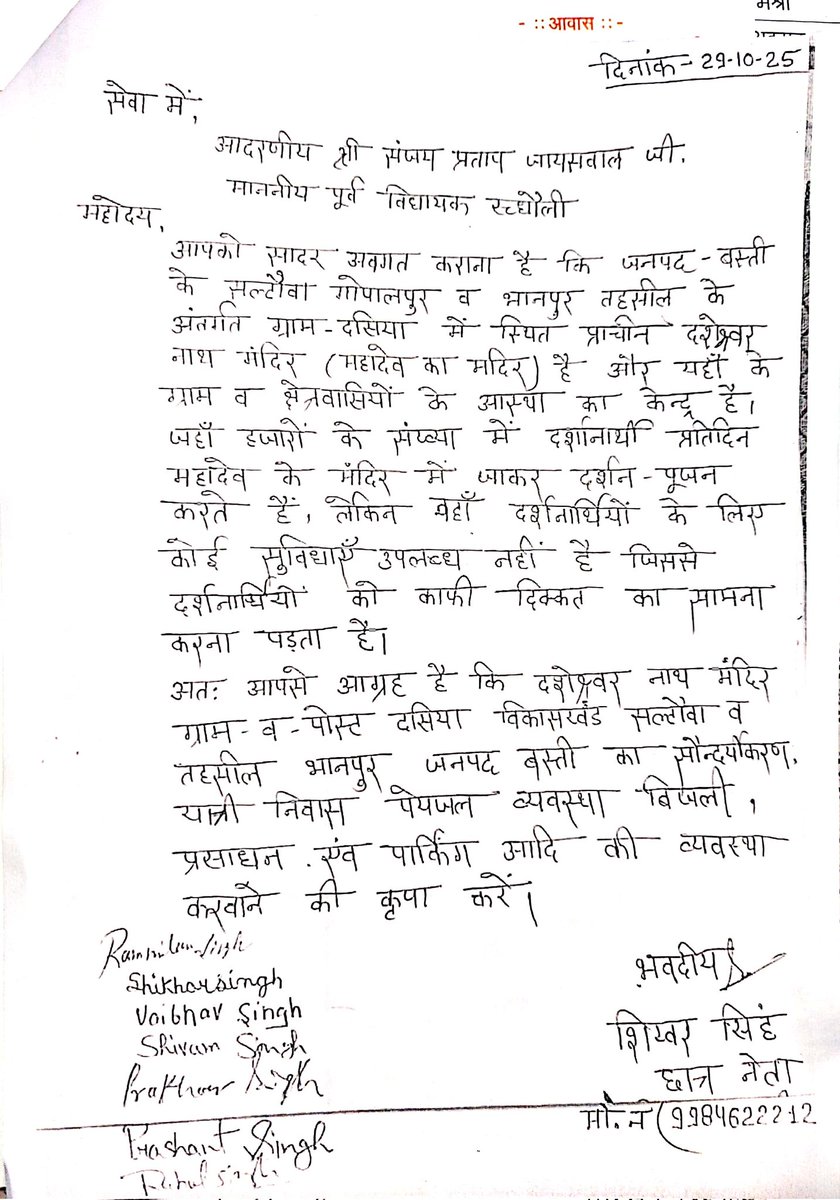 - ::आवास ::-
दिनांक - 29-10-25
सेवा में,
आदरणीय श्री संजय प्रताप जायसवाल जी.
माननीय पूर्व विधायक रूधौली
महोदय,
आपको सादर अवगत कराना है कि जनपद - बस्ती
के सल्टौवा गोपालपुर व भानपुर तहसील के
अंतर्गत ग्राम-दसिया में स्थित प्राचीन दशेश्वर
नाथ मंदिर (महादेव का मंदिर) है और यहाँ के
ग्राम व क्षेत्रवासियों के आस्था का केन्द्र है।
जहाँ हजारों के संख्या में दर्शानार्थी प्रतिदिन
महादेव के मंदिर में जाकर दर्शन-पूजन
करते हैं, लेकिन वहाँ दर्शनार्थियों के लिए
कोई सुविधाएँ उपलब्ध नहीं है जिससे
दर्शनार्थियों को काफी दिक्कत का सामना
करना पड़ता है।
अतः आपसे आग्रह है कि दशेश्वर नाथ मंदिर
ग्राम-व-पोस्ट दसिया विकासखंड सल्टौवा व
तहसील भानपुर जनपद बस्ती का सौन्दर्यीकरण,
यात्री निवास पेयजल व्यवस्था बिजली,
प्रसाधन. एंव पार्किंग आदि की व्यवस्था
करवाने की कृपा करें।
भवदीय
शिखर सिंह
छात्र नेता
मो.नं (9984622212
Singh
Shikhar singh
Vaibhav Singh
Shivam Singh
Prakhar Singh
Prashant Singh
Rahul singh